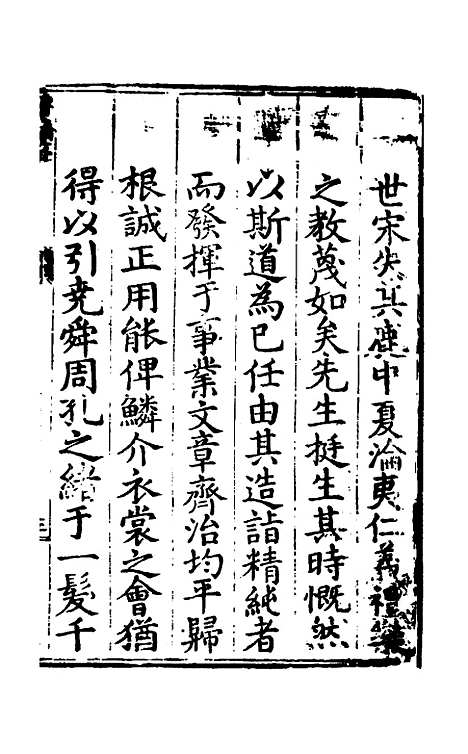 世宋失其鹿中夏淪夷仁義禮樂
之教蔑如矣先生挺生其時慨然
以斯道為己任由其造詣精純者
而發揮于事業文章齊治均平歸
根誠正用能俾鱗介衣裳之會猶
得以引堯舜周孔之緒于一髮千